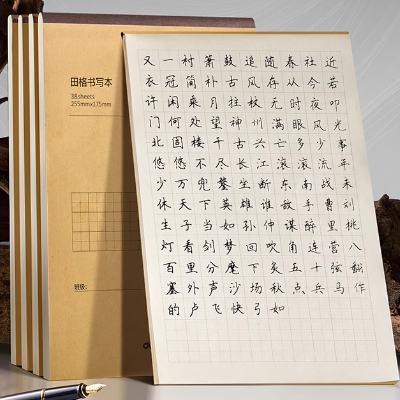 田格书写本
38sheets
255mmx175mm
班级:
又一村箫鼓追随春社近
衣冠简朴古风存从今若
许闲乘月拄杖无时夜叩
门何处望神州满眼风光
北固楼千古兴亡多少事
悠悠不尽长江滚滚流年
少万兜鍪坐断东南战未
休天下英雄谁敌手曹刘
生子当如孙仲谋醉里挑
灯看剑梦回吹角连营八
百里分麾下炙五十弦翻
塞外声沙场秋点兵马作
的卢飞快弓如